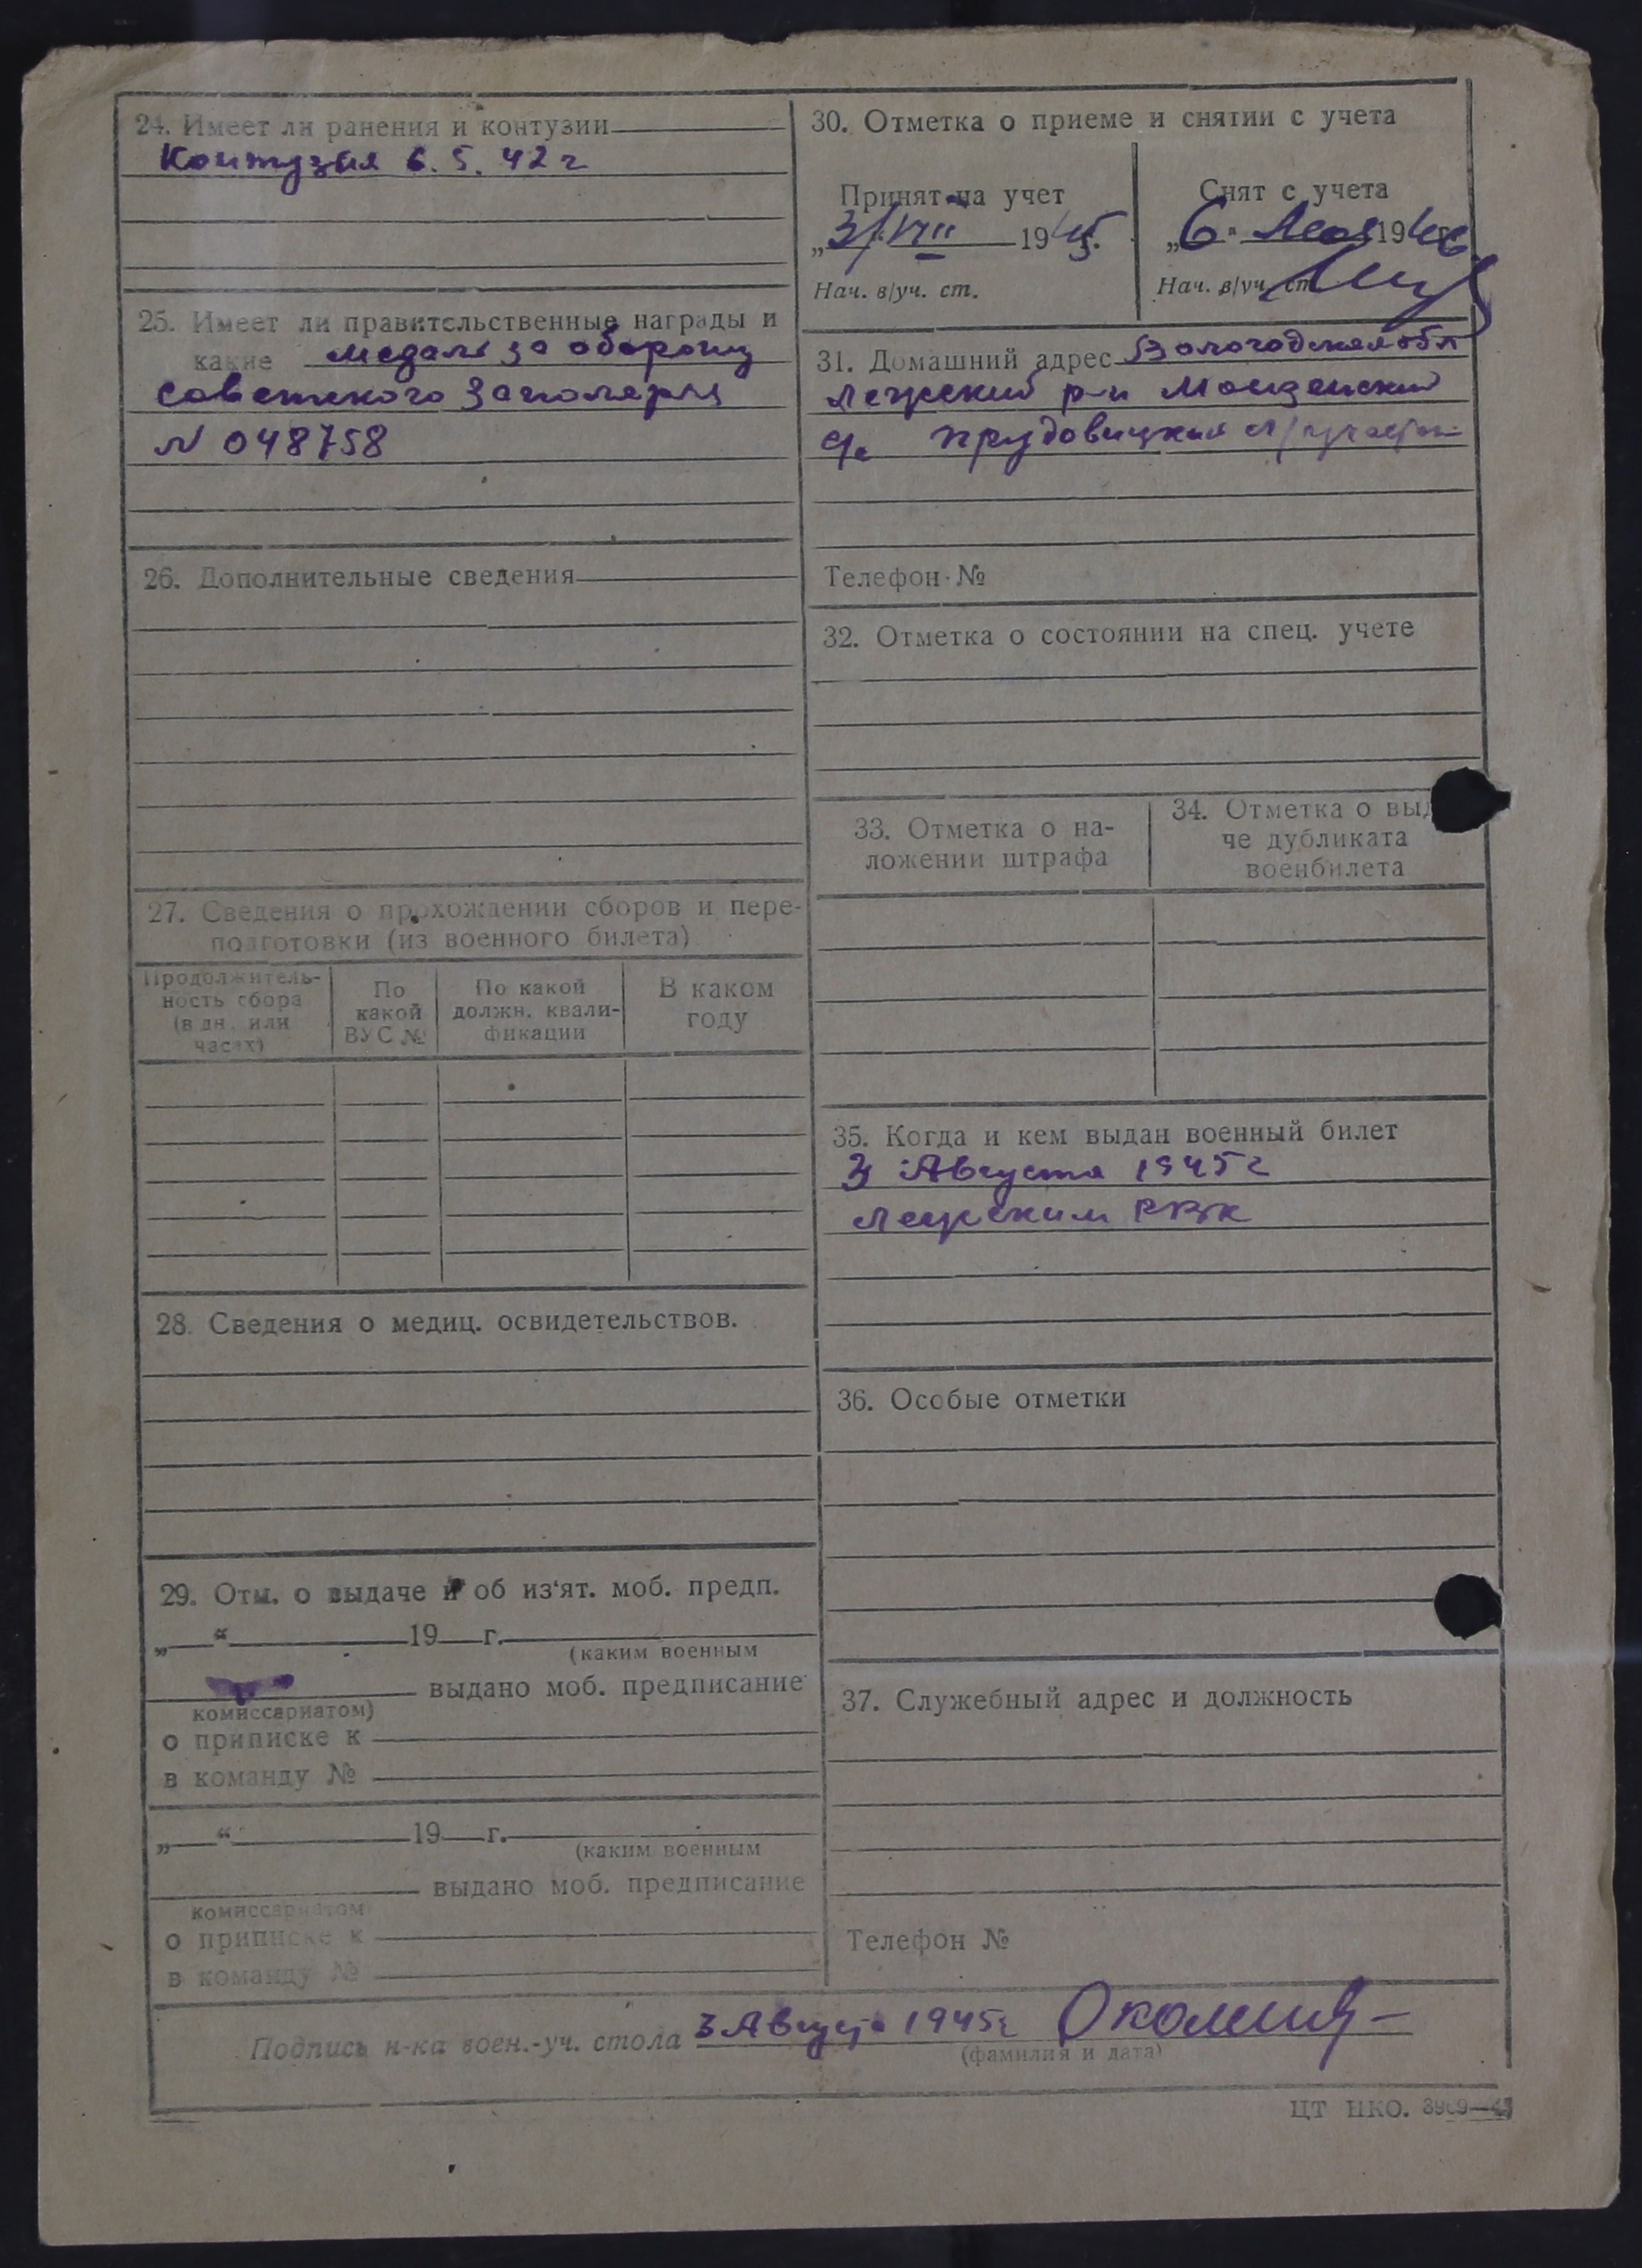 24. Имеет ли ранения и контузии
Контузия 6. 5. 42 г
25. Имеет ли правительственные награды и
какие медаль за оборону
советского Заполярья
N 048758
26. Дополнительные сведения
27. Сведения о прохождении сборов и пере-
подготовки (из военного билета)
Продолжитель-
ность сбора
(в дн. или
часах)
По
какой
ВУС №
По какой
должн. квали-
фикации
В каком
году
28. Сведения о медиц. освидетельствов.
29. Отм. о выдаче и об из'ят. моб. предп.
„ “ 19 г.
(каким военным
выдано моб. предписание
комиссариатом)
о приписке к
в команду №
„ “ 19 г.
(каким военным
выдано моб. предписание
комиссариатом
о приписке к
в команду №
30. Отметка о приеме и снятии с учета
Принят на учет
„3/VIII 1945.
Нач. в/уч. ст.
Снят с учета
„6" Мая 1946
Нач. в/уч. ст.
31. Домашний адрес Вологодская обл
р-н Монзенский
Телефон №
32. Отметка о состоянии на спец. учете
33. Отметка о на-
ложении штрафа
34. Отметка о выд
че дубликата
военбилета
35. Когда и кем выдан военный билет
3 Августа 1945 г
РВК
36. Особые отметки
37. Служебный адрес и должность
Телефон №
Подпись н-ка воен.-уч. стола 3 Август 1945г
(фамилия и дата)
ЦТ НКО.